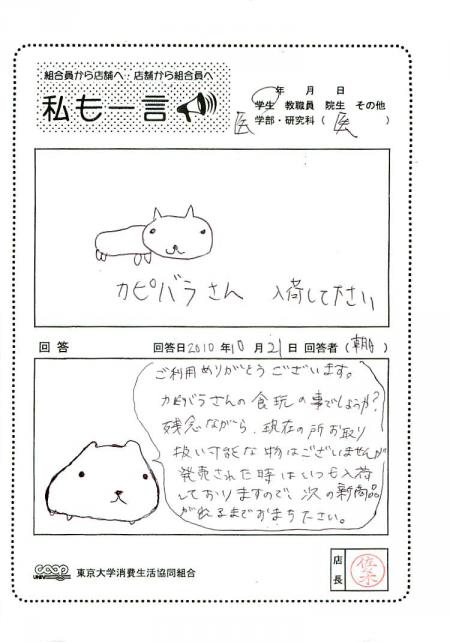 組合員から店舗へ 店舗から組合員へ
私も一言
年 月 日
学生 教職員 院生 その他
医 学部・研究科 ( 医 )
カピバラさん 入荷して下さい
回答 回答日2010年10月21日 回答者(朝日)
ご利用ありがとうございます。
カピバラさんの食玩の事でしょうか?
残念ながら、現在の所お取り
扱い可能な物はございませんが
発売された時はいつも入荷
しておりますので、次の新商品
が出るまでおまち下さい。
coop
UNIV
東京大学消費生活協同組合
店長